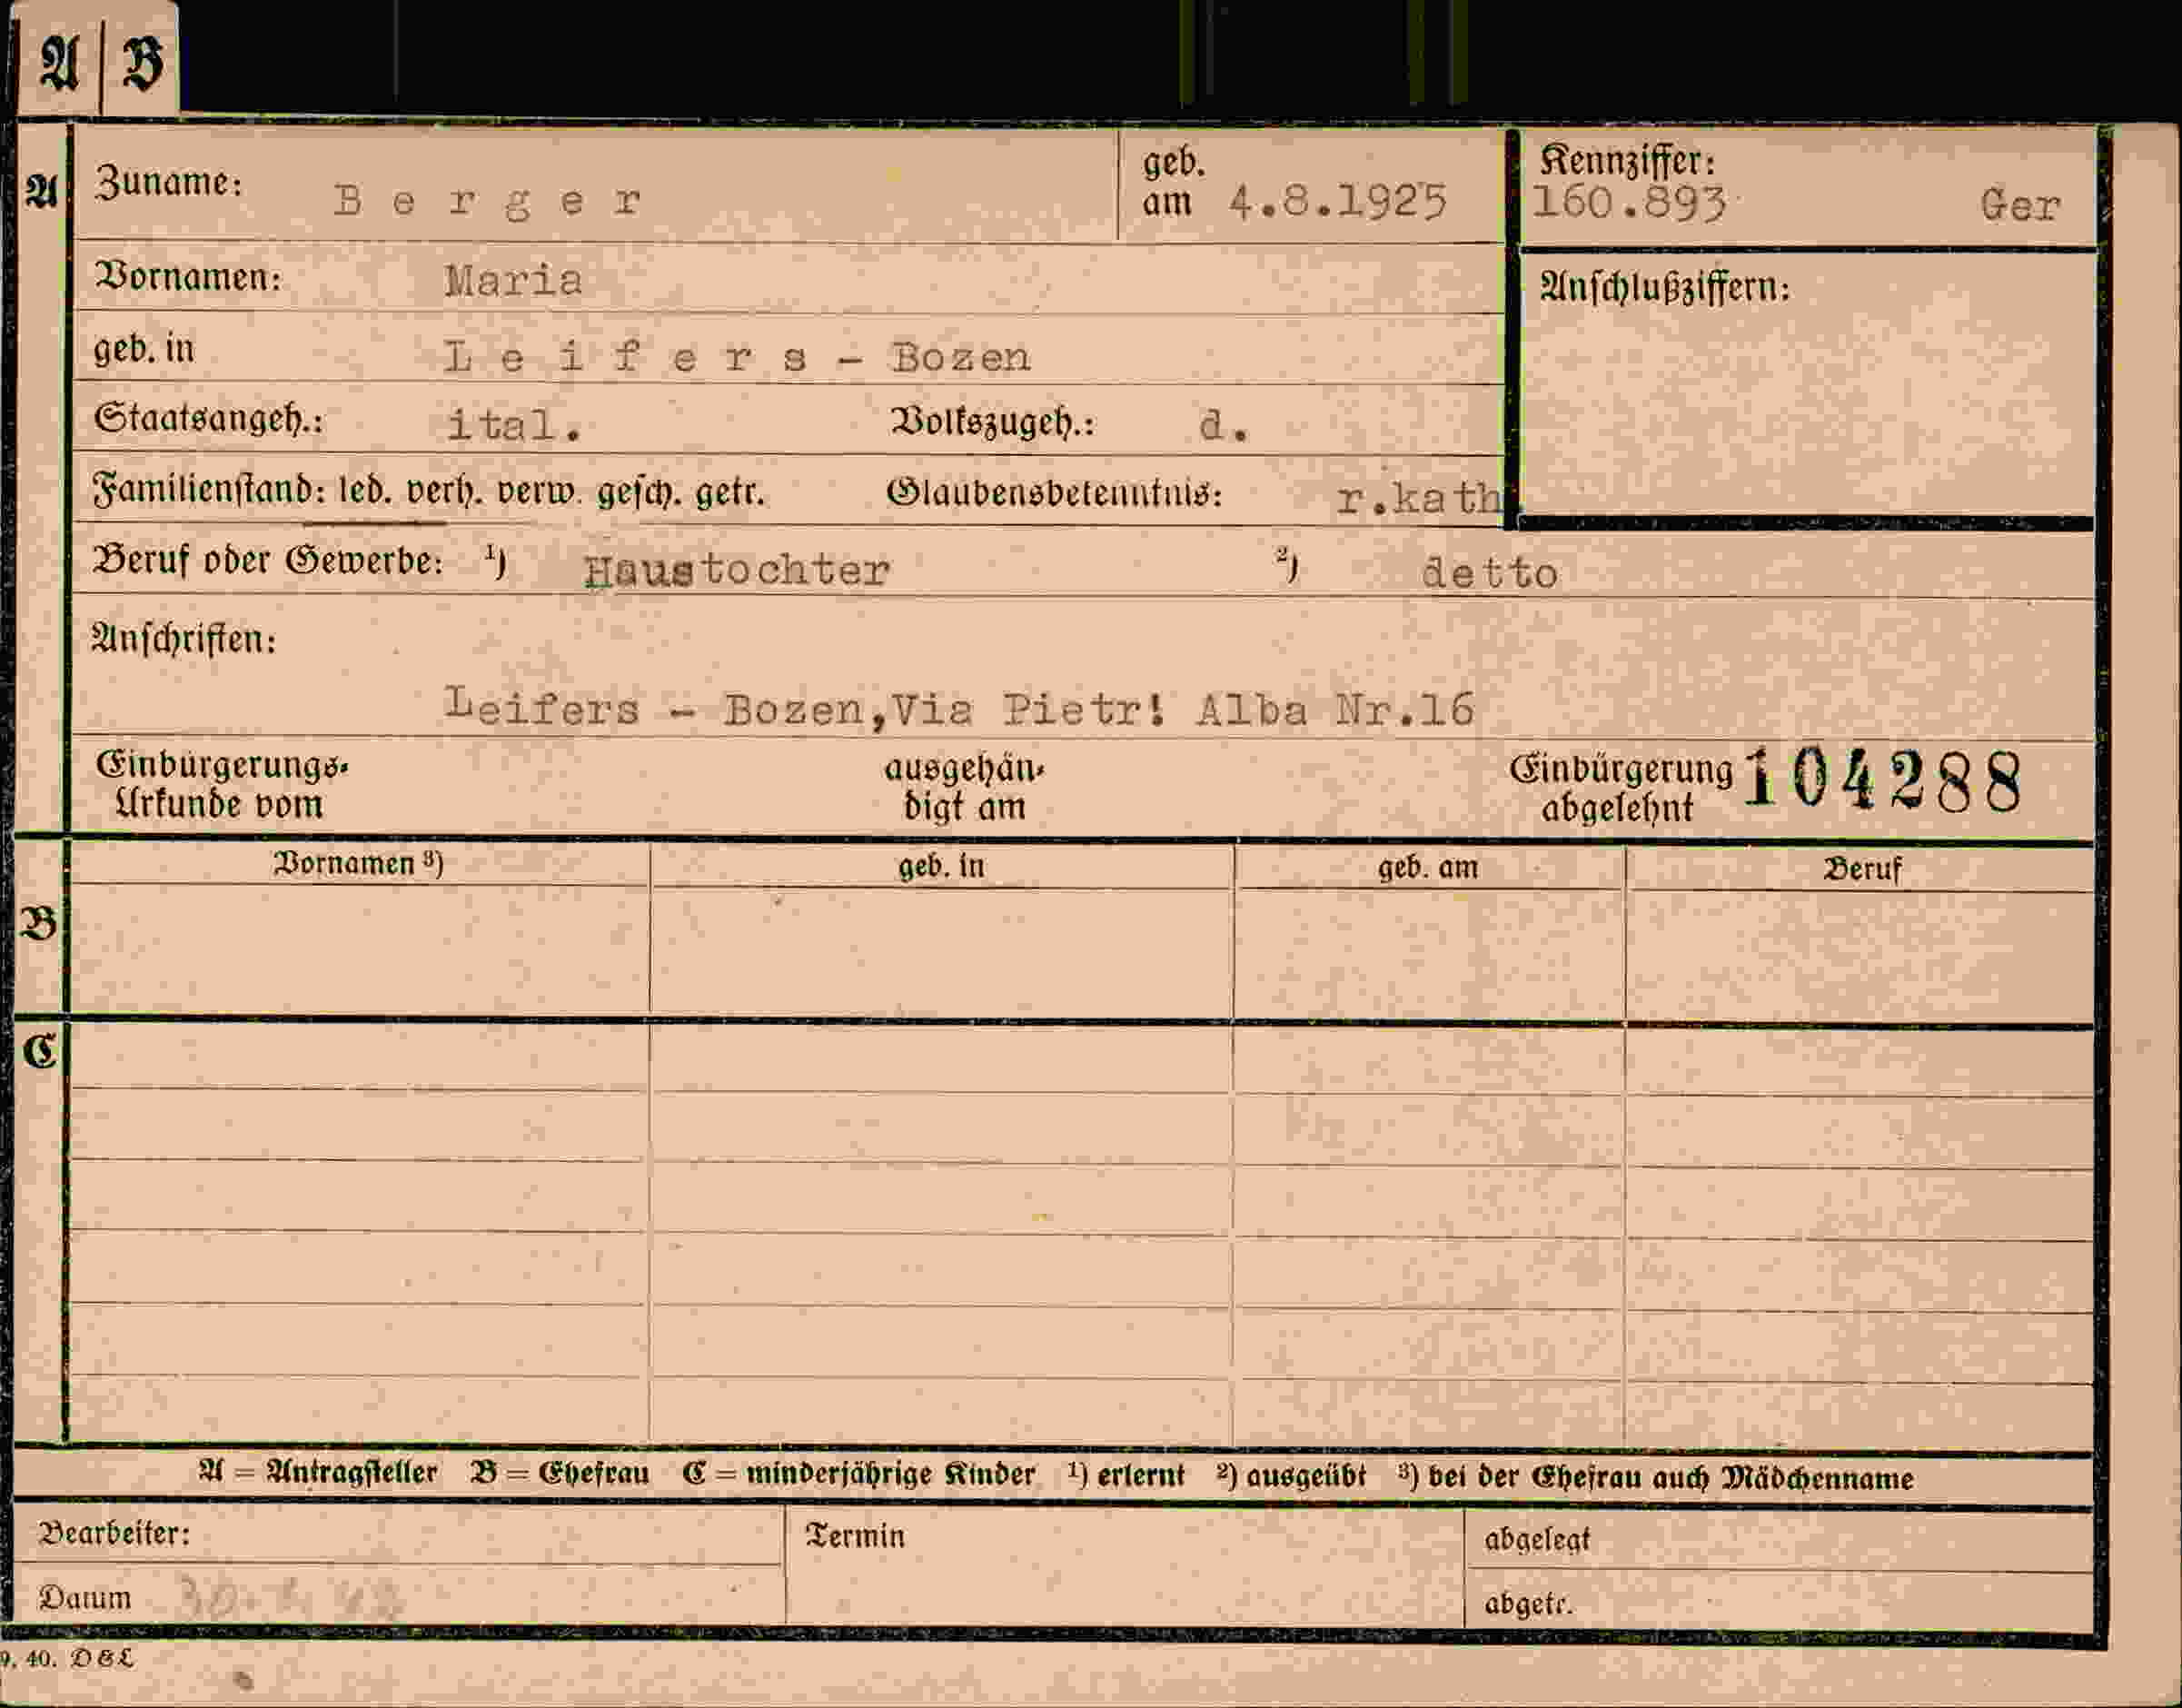 A | B
A Zuname: Berger geb. am 4.8.1925 Kennziffer: 160.893 Ger
Vornamen: Maria Anschlußziffern:
geb. in Leifers - Bozen
Staatsangeh.: ital. Volkszugeh.: d.
Familienstand: led. verh. verw. gesch. getr. Glaubensbekenntnis: r.kath
Beruf oder Gewerbe: ¹) Haustochter ²) detto
Anschriften:
Leifers - Bozen,Via Pietr! Alba Nr.16
Einbürgerungs- Urkunde vom ausgehän- digt am Einbürgerung abgelehnt 104288
Vornamen ³) geb. in geb. am Beruf
B
C
A = Antragsteller B = Ehefrau C = minderjährige Kinder ¹) erlernt ²) ausgeübt ³) bei der Ehefrau auch Mädchenname
Bearbeiter: Termin abgelegt
Datum abgetr.
9. 40. DEL